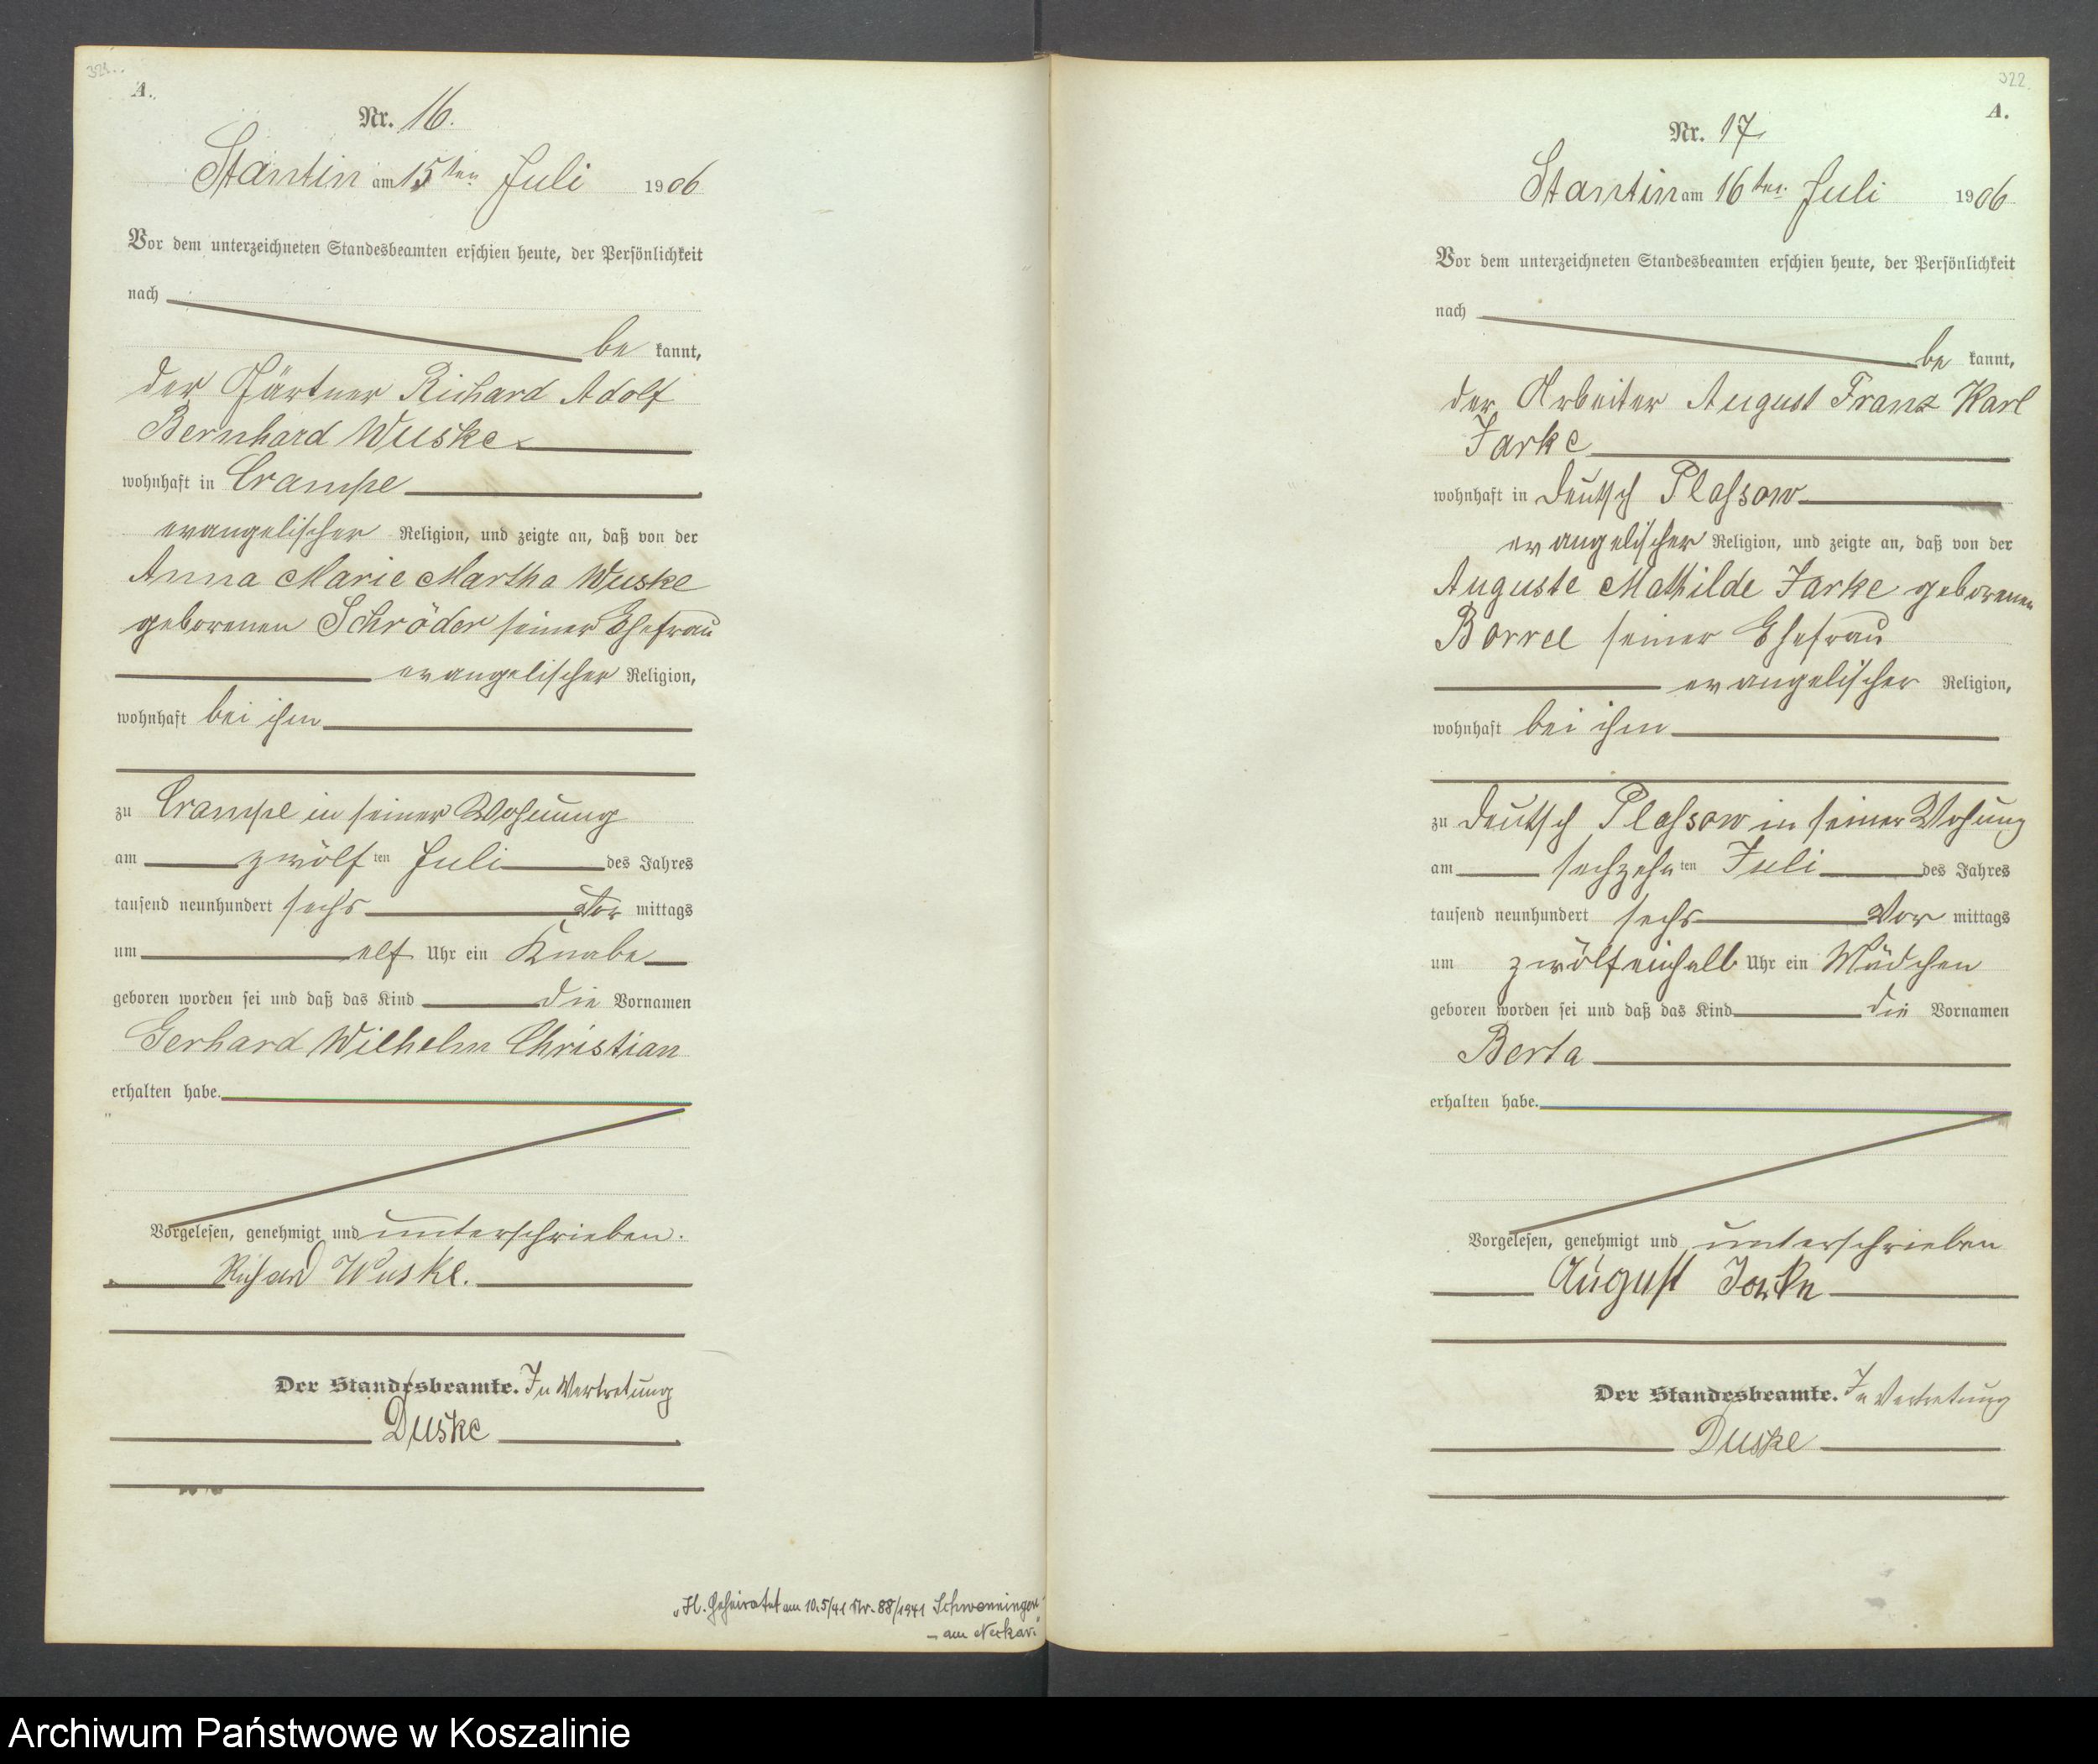 A.
Nr. 16.
Stantin am 15ten Juli 1906
Vor dem unterzeichneten Standesbeamten erschien heute, der Persönlichkeit
nach
be kannt,
der Gärtner Richard Adolf
Bernhard Wuske
wohnhaft in Crampe
evangelischer Religion, und zeigte an, daß von der
Anna Marie Martha Wuske
geborenen Schröder seiner Ehefrau
evangelischer Religion,
wohnhaft bei ihm
zu Crampe in seiner Wohnung
am zwölf ten Juli des Jahres
tausend neunhundert sechs Vor mittags
um elf Uhr ein Knabe
geboren worden sei und daß das Kind die Vornamen
Gerhard Wilhelm Christian
erhalten habe.
Vorgelesen, genehmigt und unterschrieben.
Richard Wuske.
Der Standesbeamte. In Vertretung
Duske
"H. Geheiratet am 10.5/41 Nr. 88/1941 Schwenningen
– am Neckar."
322
A.
Nr. 17.
Stantin am 16ten Juli 1906
Vor dem unterzeichneten Standesbeamten erschien heute, der Persönlichkeit
nach
be kannt,
der Arbeiter August Franz Karl
Jarke
wohnhaft in Deutsch Plassow
evangelischer Religion, und zeigte an, daß von der
Auguste Mathilde Jarke geborenen
Borree seiner Ehefrau
evangelischer Religion,
wohnhaft bei ihm
zu Deutsch Plassow in seiner Wohung
am sechzehn ten Juli des Jahres
tausend neunhundert sechs Vor mittags
um zwölfeinhalb Uhr ein Mädchen
geboren worden sei und daß das Kind die Vornamen
Berta
erhalten habe.
Vorgelesen, genehmigt und unterschrieben
August Jarke
Der Standesbeamte. In Vertretung
Duske
Archiwum Państwowe w Koszalinie